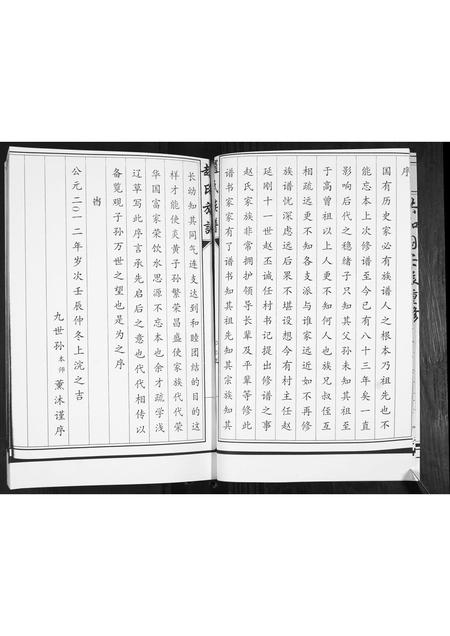 序
国有历史家必有族谱人之根本乃祖先也不
能忘本上次修谱至今已有八十三年矣一直
影响后代之穗绪子只知其父孙未知其祖至
于高曾祖以上人更不知何人也族兄叔侄互
相疏远更不知各支派与谁家远近如不再修
族谱忧深虑远后果不堪设想今有村主任赵
延刚十一世赵丕诚任村书记提出修谱之事
赵氏家族非常拥护领导长辈及平辈等修此
谱书家家有了谱书知其祖先知其宗族知其
赵氏族谱
长幼知其同气连支达到和睦团结的目的这
样才能使炎黄子孙繁荣昌盛使家族代代荣
华国富家荣饮水思源不忘本也余才疏学浅
辽草写此序言承先启后之意也代代相传以
备览观子孙万世之望也是为之序
时
公元二〇一二年岁次壬辰仲冬上浣之吉
九世孙本师薰沐谨序